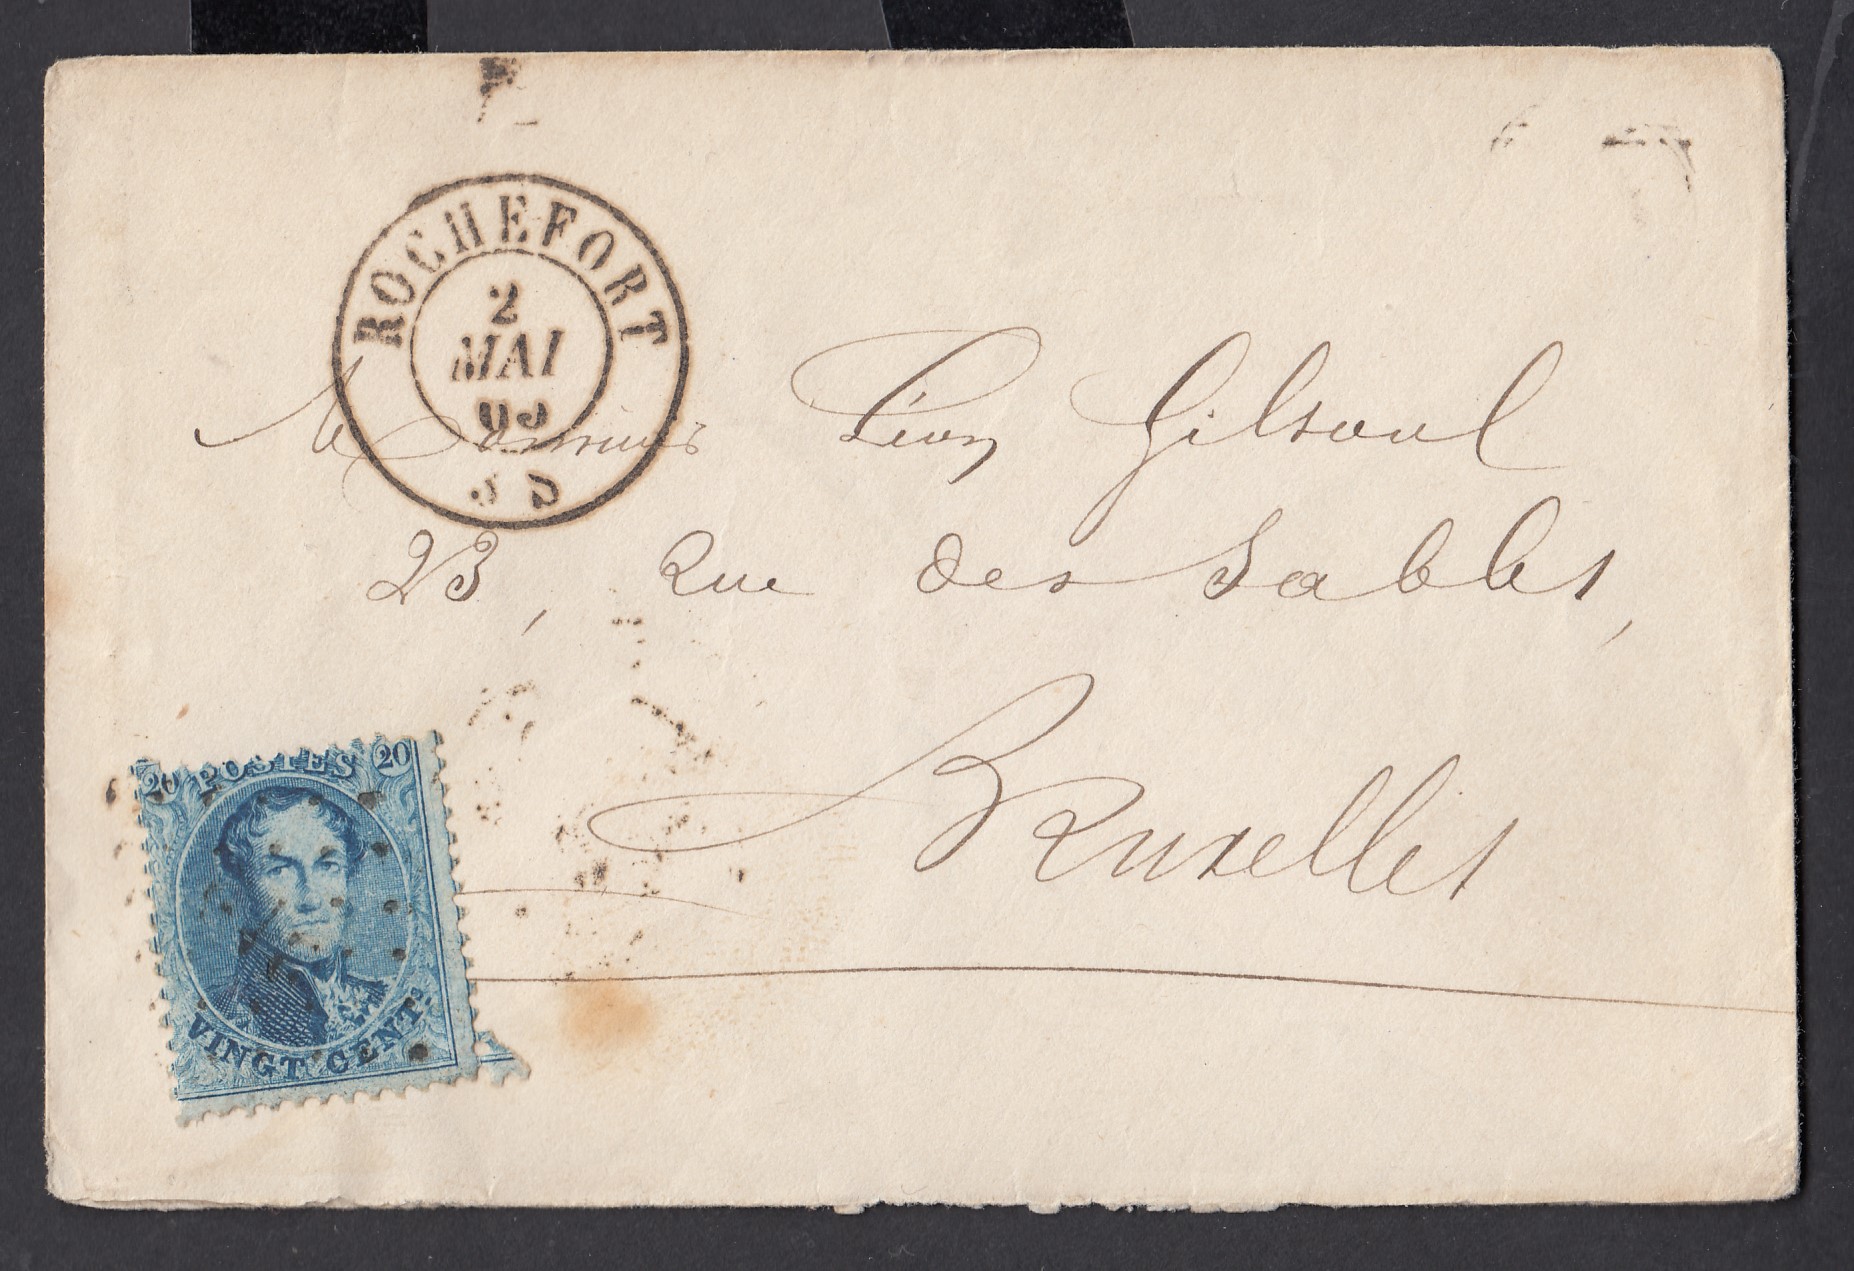 ROCHEFORT
2
MAI
65
Monsieur Léon Gilsoul
23, Rue des Sables,
Bruxelles
20 POSTES 20
VINGT CENTS